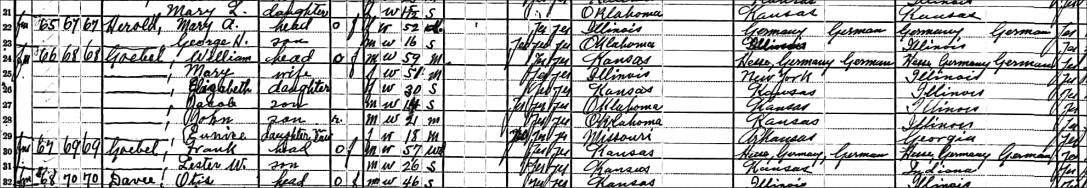 21 Mary L. daughter f w S Oklahoma Kansas Kansas
22 fm 65 67 67 Herold, Mary A. head o f w 52 Yes Yes Illinois Germany German Germany German Yes
23 George H. son m w 16 S Yes Yes Yes Oklahoma Illinois Illinois Yes
24 fm 66 68 68 Goebel, William head o m w 59 m Yes Yes Kansas Hesse, Germany German Hesse, Germany German Yes
25 ———, Mary wife f w 51 m Yes Yes Illinois New York Illinois Yes
26 ———, Elizabeth daughter f w 30 S Yes Yes Kansas Kansas Illinois Yes
27 ———, Jacob son m w 14 S Yes Yes Yes Oklahoma Kansas Illinois Yes
28 ———, John son m w 21 m Yes Yes Oklahoma Kansas Illinois Yes
29 ———, Eunice daughter f w 18 m Yes Yes Missouri Arkansas Georgia Yes
30 fm 67 69 69 Goebel, Frank head o m w 57 Yes Yes Kansas Hesse, Germany, German Hesse, Germany German Yes
31 ———, Lester W. son m w 26 S Yes Yes Kansas Kansas Indiana Yes
32 fm 68 70 70 Davee, Otis head o m w 46 S Yes Yes Kansas Illinois Illinois Yes